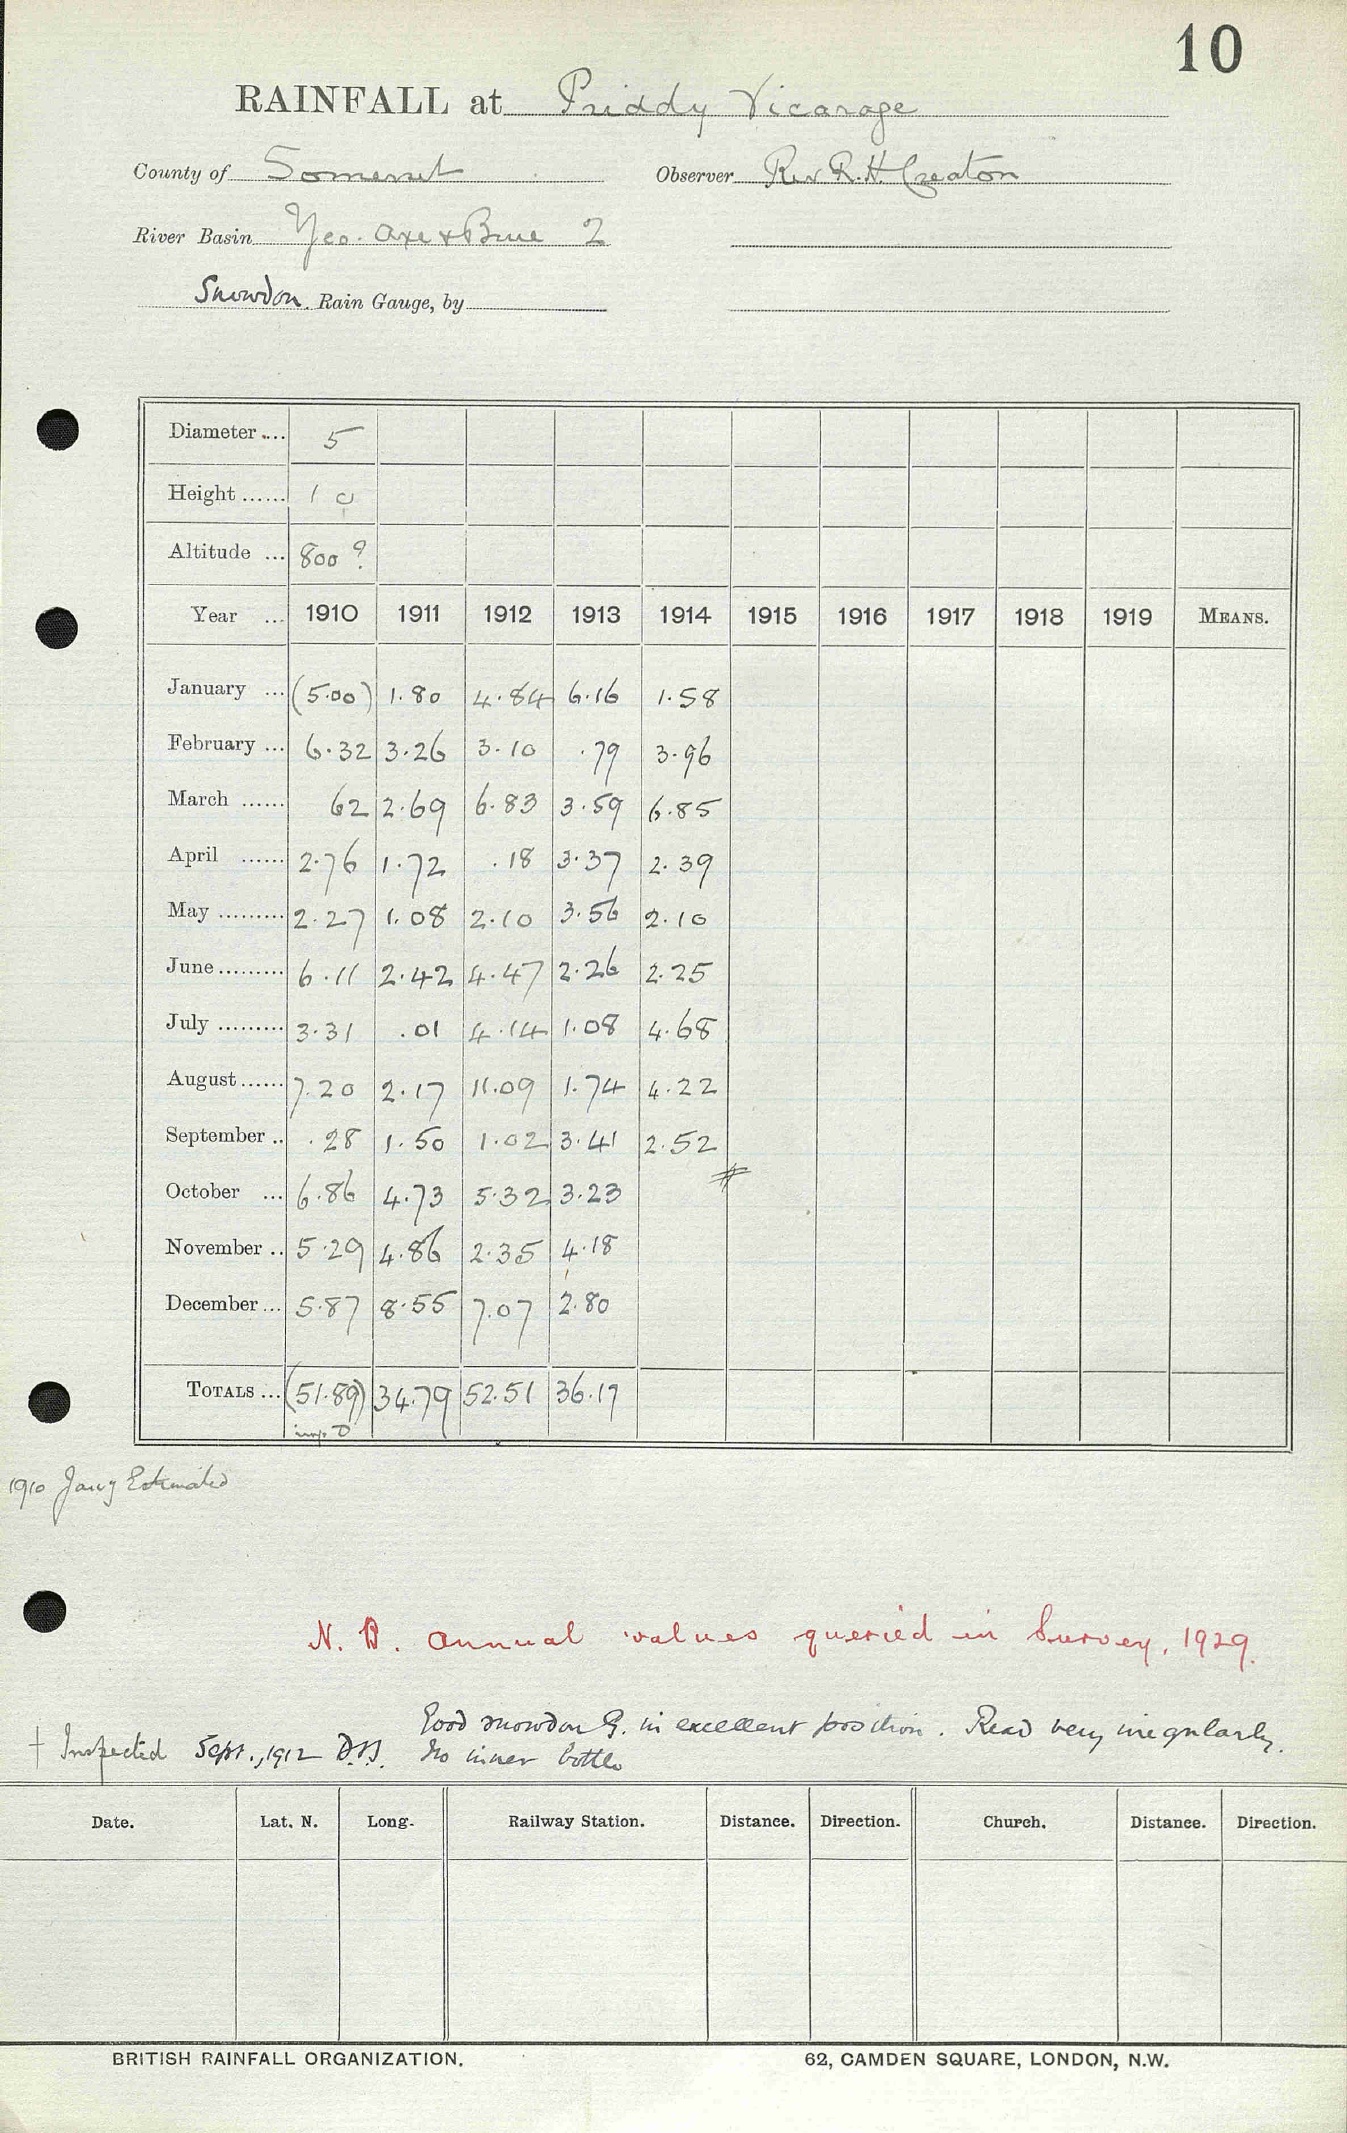 10
RAINFALL at Priddy Vicarage
County of Somerset Observer Rev R.H. Creaton
River Basin Yeo. Axe & Brue 2
Snowdon Rain Gauge, by
Diameter.... 5
Height...... 1 0
Altitude ... 800 ?
Year ... 1910 1911 1912 1913 1914 1915 1916 1917 1918 1919 MEANS.
January ... (5.00) 1.80 4.84 6.16 1.58
February ... 6.32 3.26 3.10 .79 3.96
March ...... 62 2.69 6.83 3.59 6.85
April ...... 2.76 1.72 .18 3.37 2.39
May ......... 2.27 1.08 2.10 3.56 2.10
June......... 6.11 2.42 4.47 2.26 2.25
July ......... 3.31 .01 4.14 1.08 4.68
August...... 7.20 2.17 11.09 1.74 4.22
September .. .28 1.50 1.02 3.41 2.52
October ... 6.86 4.73 5.32 3.23
November .. 5.29 4.86 2.35 4.18
December ... 5.87 8.55 7.07 2.80
TOTALS ... (51.89) 34.79 52.51 36.17
1910 Jany Estimated
N.B. Annual values queried in Survey, 1929.
Good snowdon G. in excellent position. Read very irregularly.
† Inspected Sept., 1912 No inner bottle
Date. Lat. N. Long. Railway Station. Distance. Direction. Church. Distance. Direction.
BRITISH RAINFALL ORGANIZATION. 62, CAMDEN SQUARE, LONDON, N.W.